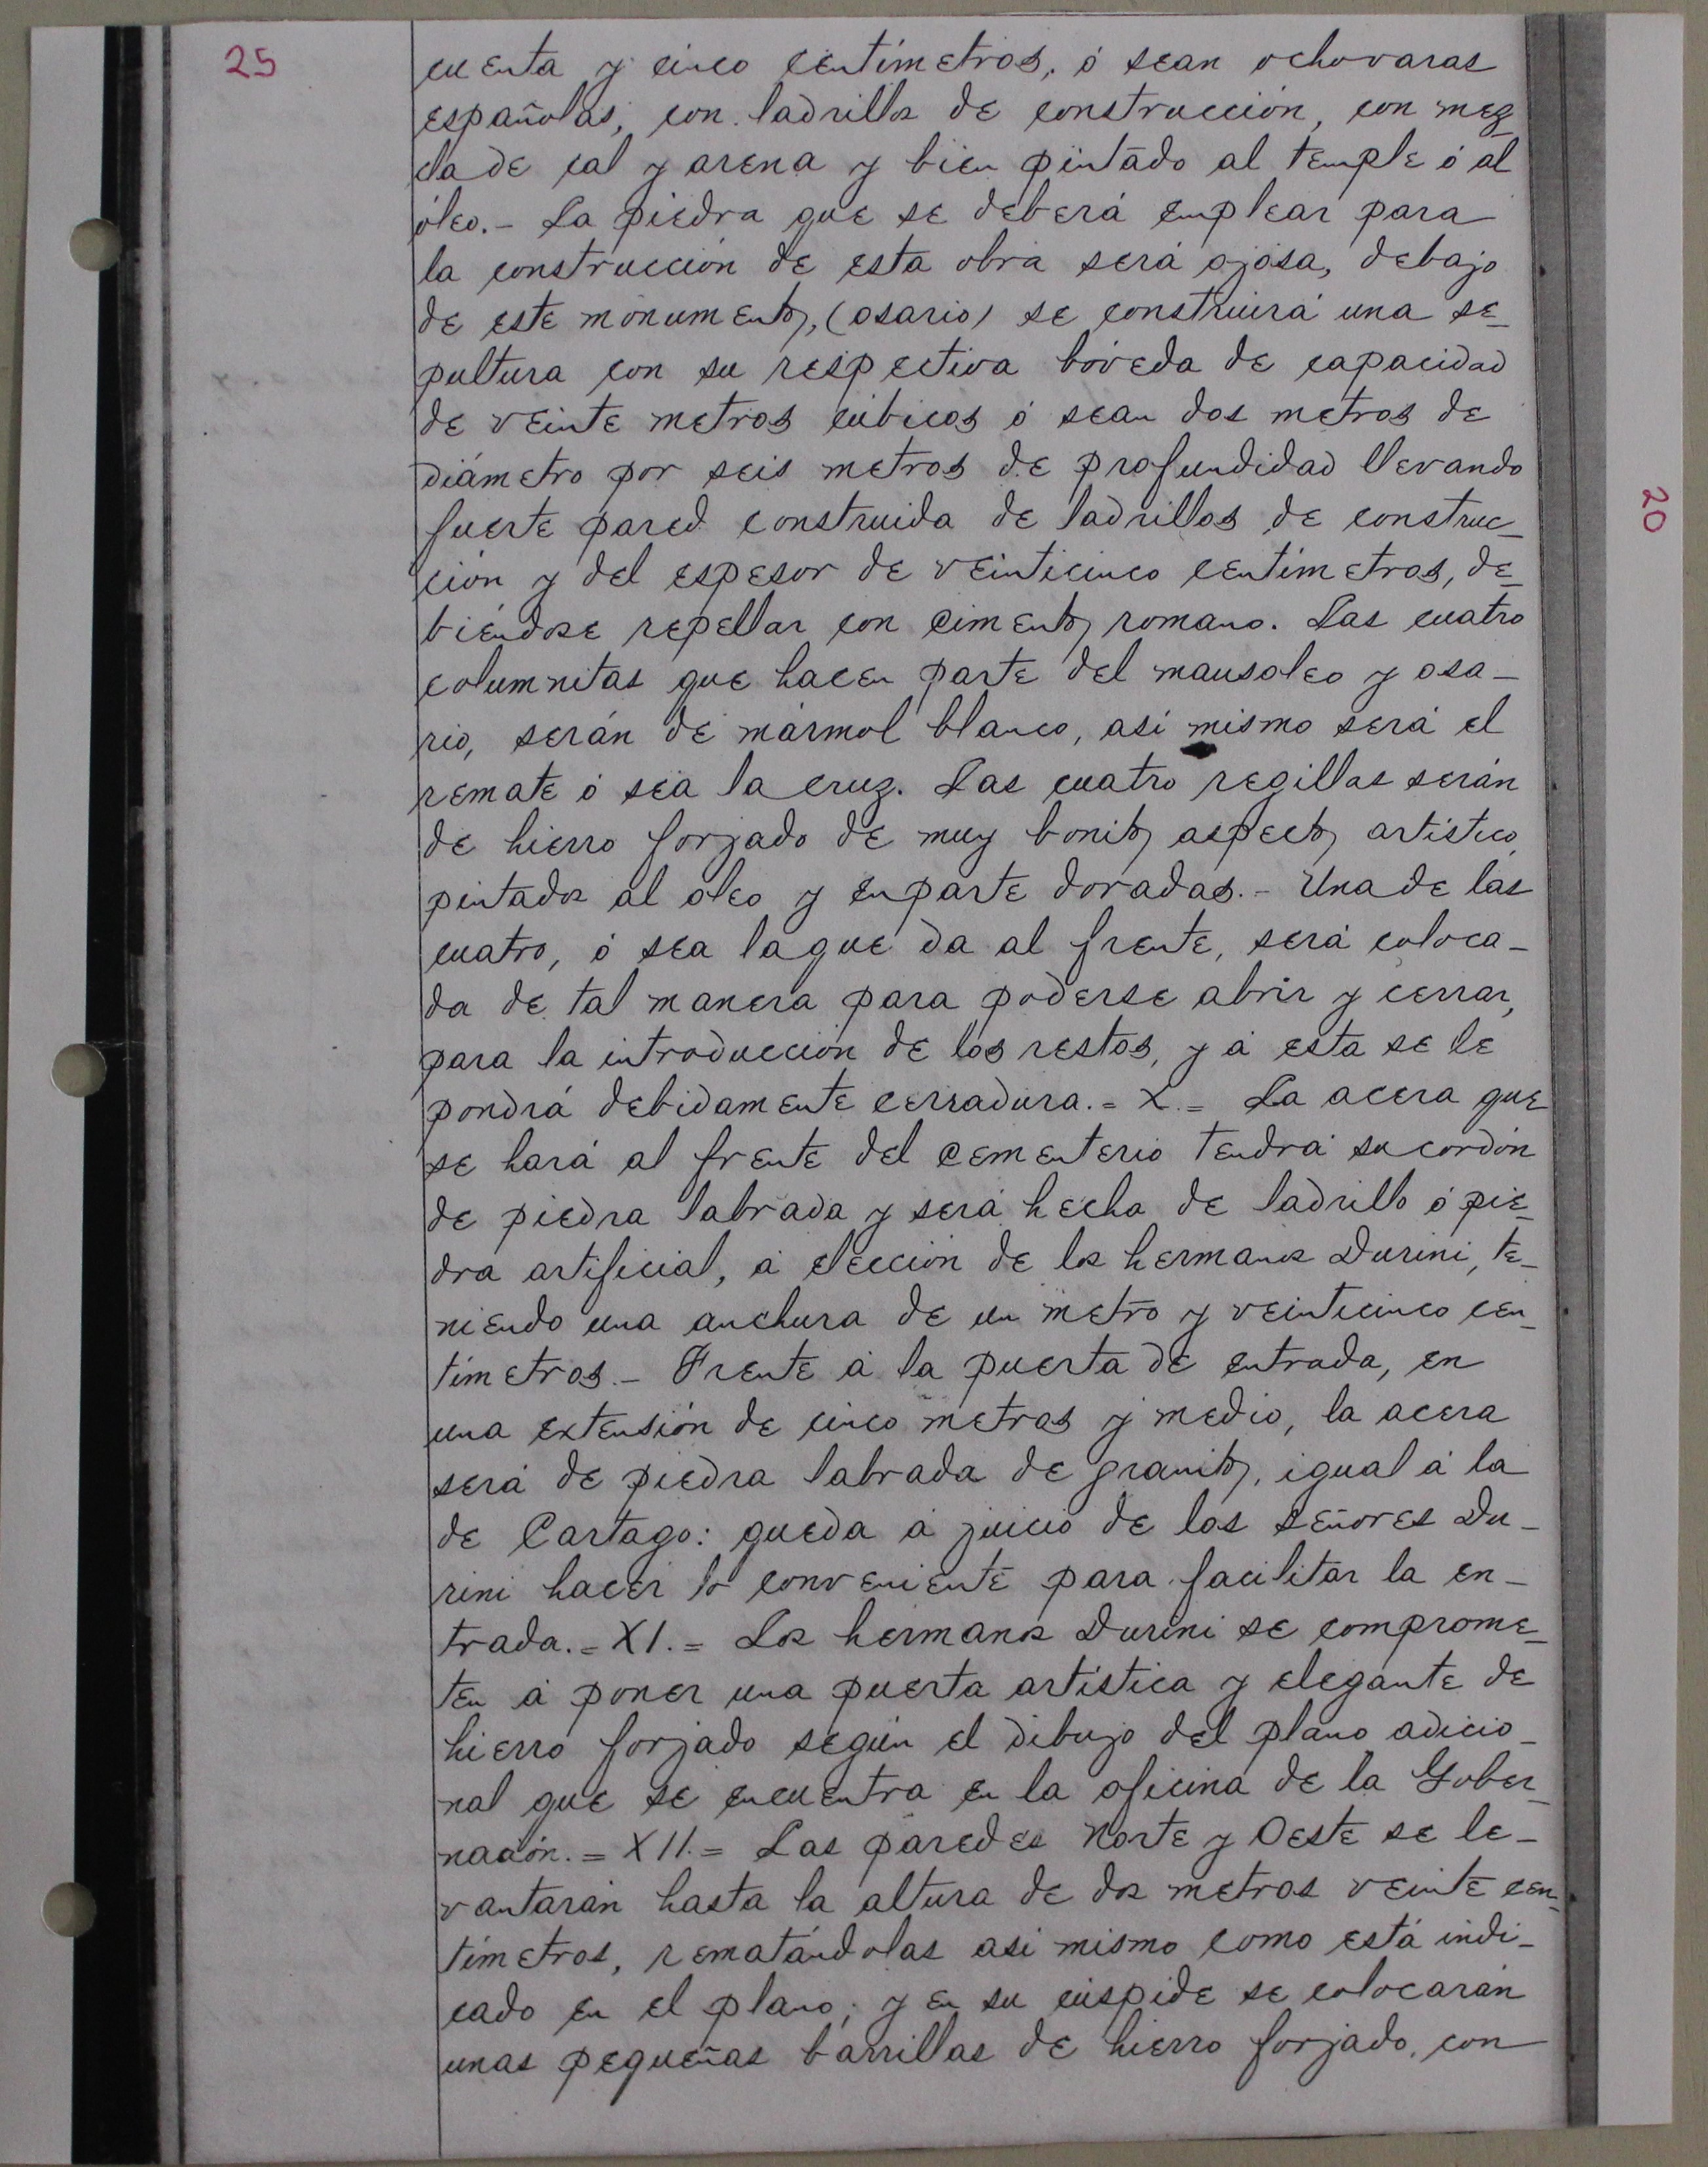 25
cuenta y cinco centímetros, ó sean ochovaras
españolas, con ladrillos de construcción, con mez
cla de cal y arena y bien pintado al temple ó al
óleo.- La piedra que se deberá emplear para
la construcción de esta obra será ojosa, debajo
de este monumento, (osario) se construirá una se_
pultura con su respectiva bóveda de capacidad
de veinte metros cúbicos ó sean dos metros de
diámetro por seis metros de profundidad llevando
fuerte pared construida de ladrillos de construc_
ción y del espesor de veinticinco centímetros, de_
biéndose repellar con cimento romano. Las cuatro
columnitas que hacen parte del mausoleo y osa-
rio, serán de mármol blanco, así mismo será el
remate ó sea la cruz. Las cuatro regillas serán
de hierro forjado de muy bonito aspecto artístico,
pintados al oleo y en parte doradas.- Una de las
cuatro, ó sea la que da al frente, será coloca-
da de tal manera para poderse abrir y cerrar,
para la introducción de los restos, y á esta se le
pondrá debidamente cerradura.= X.= La acera que
se hará al frente del cementerio tendrá su cordón
de piedra labrada y será hecha de ladrillo ó pie_
dra artificial, á elección de los hermanos Durini, te_
niendo una anchura de un metro y veinticinco cen_
tímetros.- Frente á la puerta de entrada, en
una extensión de cinco metros y medio, la acera
será de piedra labrada de granito, igual á la
de Cartago: queda á juicio de los señores Du-
rini hacer lo conveniente para facilitar la en-
trada.=XI.= Los hermanos Durini se comprome_
ten á poner una puerta artística y elegante de
hierro forjado según el dibujo del plano adicio_
nal que se encuentra en la oficina de la Gober_
nación.=XII.= Las paredes Norte y Oeste se le-
vantarán hasta la altura de dos metros veinte cen_
tímetros, rematándolas así mismo como está indi-
cado en el plano; y en su cúspide se colocarán
unas pequeñas barrillas de hierro forjado, con
20